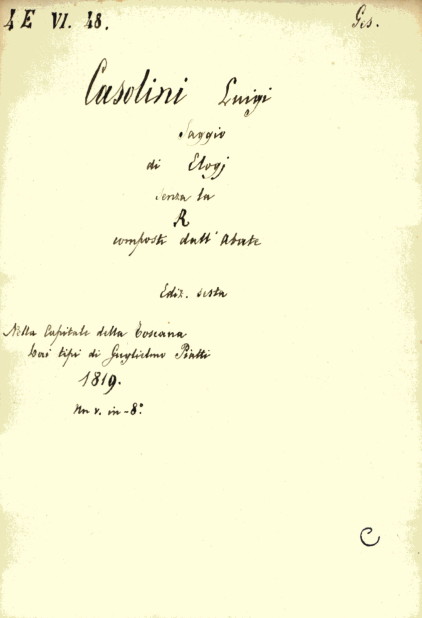 4 E VI. 48. Ges.
Casolini Luigi
Saggio
di Elogj
senza la
R
composti dall' Abate
Ediz. sesta
Nella Capitale della Toscana
Coi tipi di Guglielmo Piatti
1819.
Un v. in-8°
C